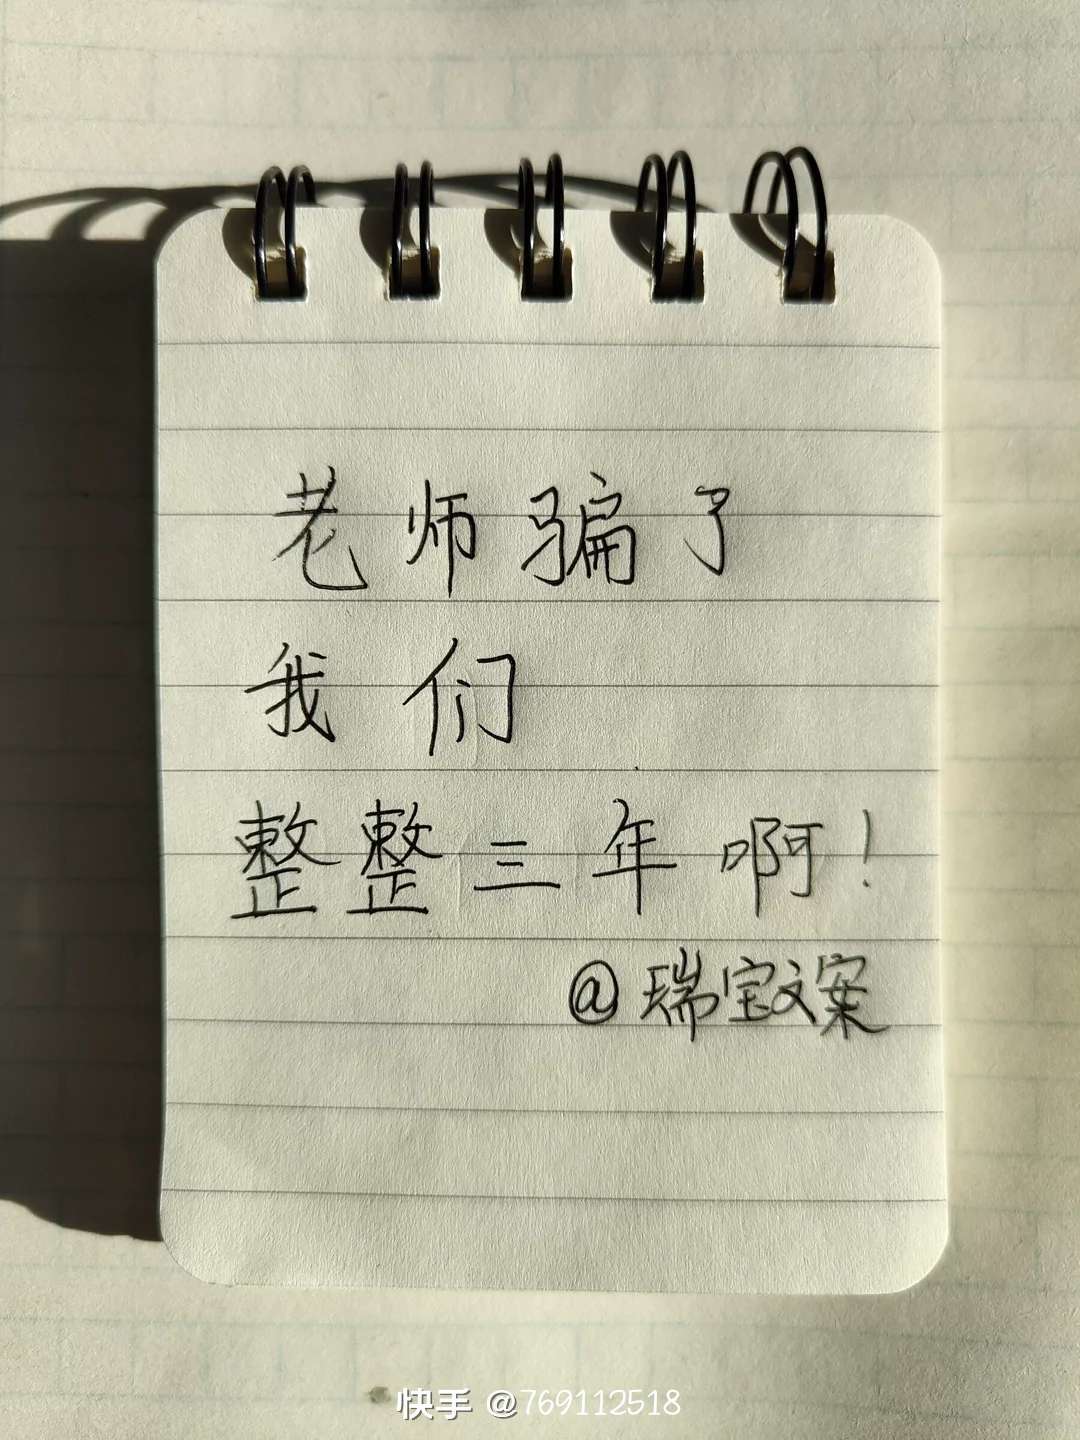 老师骗了
我们
整整三年啊！
@瑞宝文案
快手 @769112518